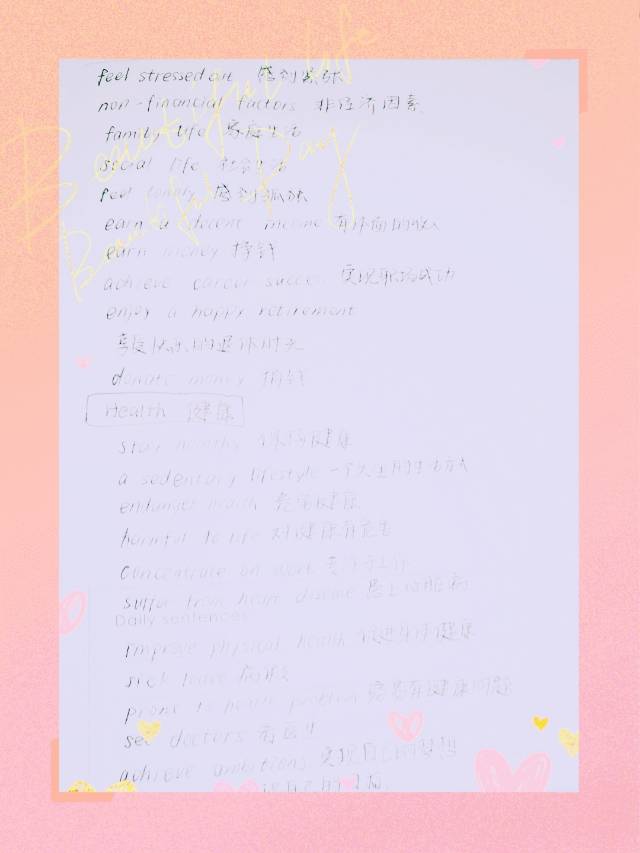 Beautiful life
Beautiful Day
feel stressed out 感到紧张
non-financial factors 非经济因素
family life 家庭生活
social life 社会生活
feel lonely 感到孤独
earn a decent income 有体面的收入
earn money 挣钱
achieve career success 实现职场成功
enjoy a happy retirement
享受快乐的退休时光
donate money 捐钱
Health 健康
stay healthy 保持健康
a sedentary lifestyle 一个久坐的生活方式
endanger health 危害健康
harmful to life 对健康有危害
concentrate on work 专注于工作
suffer from heart disease 患上心脏病
Daily sentences
improve physical health 促进身体健康
sick leave 病假
prone to health problem 容易有健康问题
see doctors 看医生
achieve ambitions 实现自己的梦想